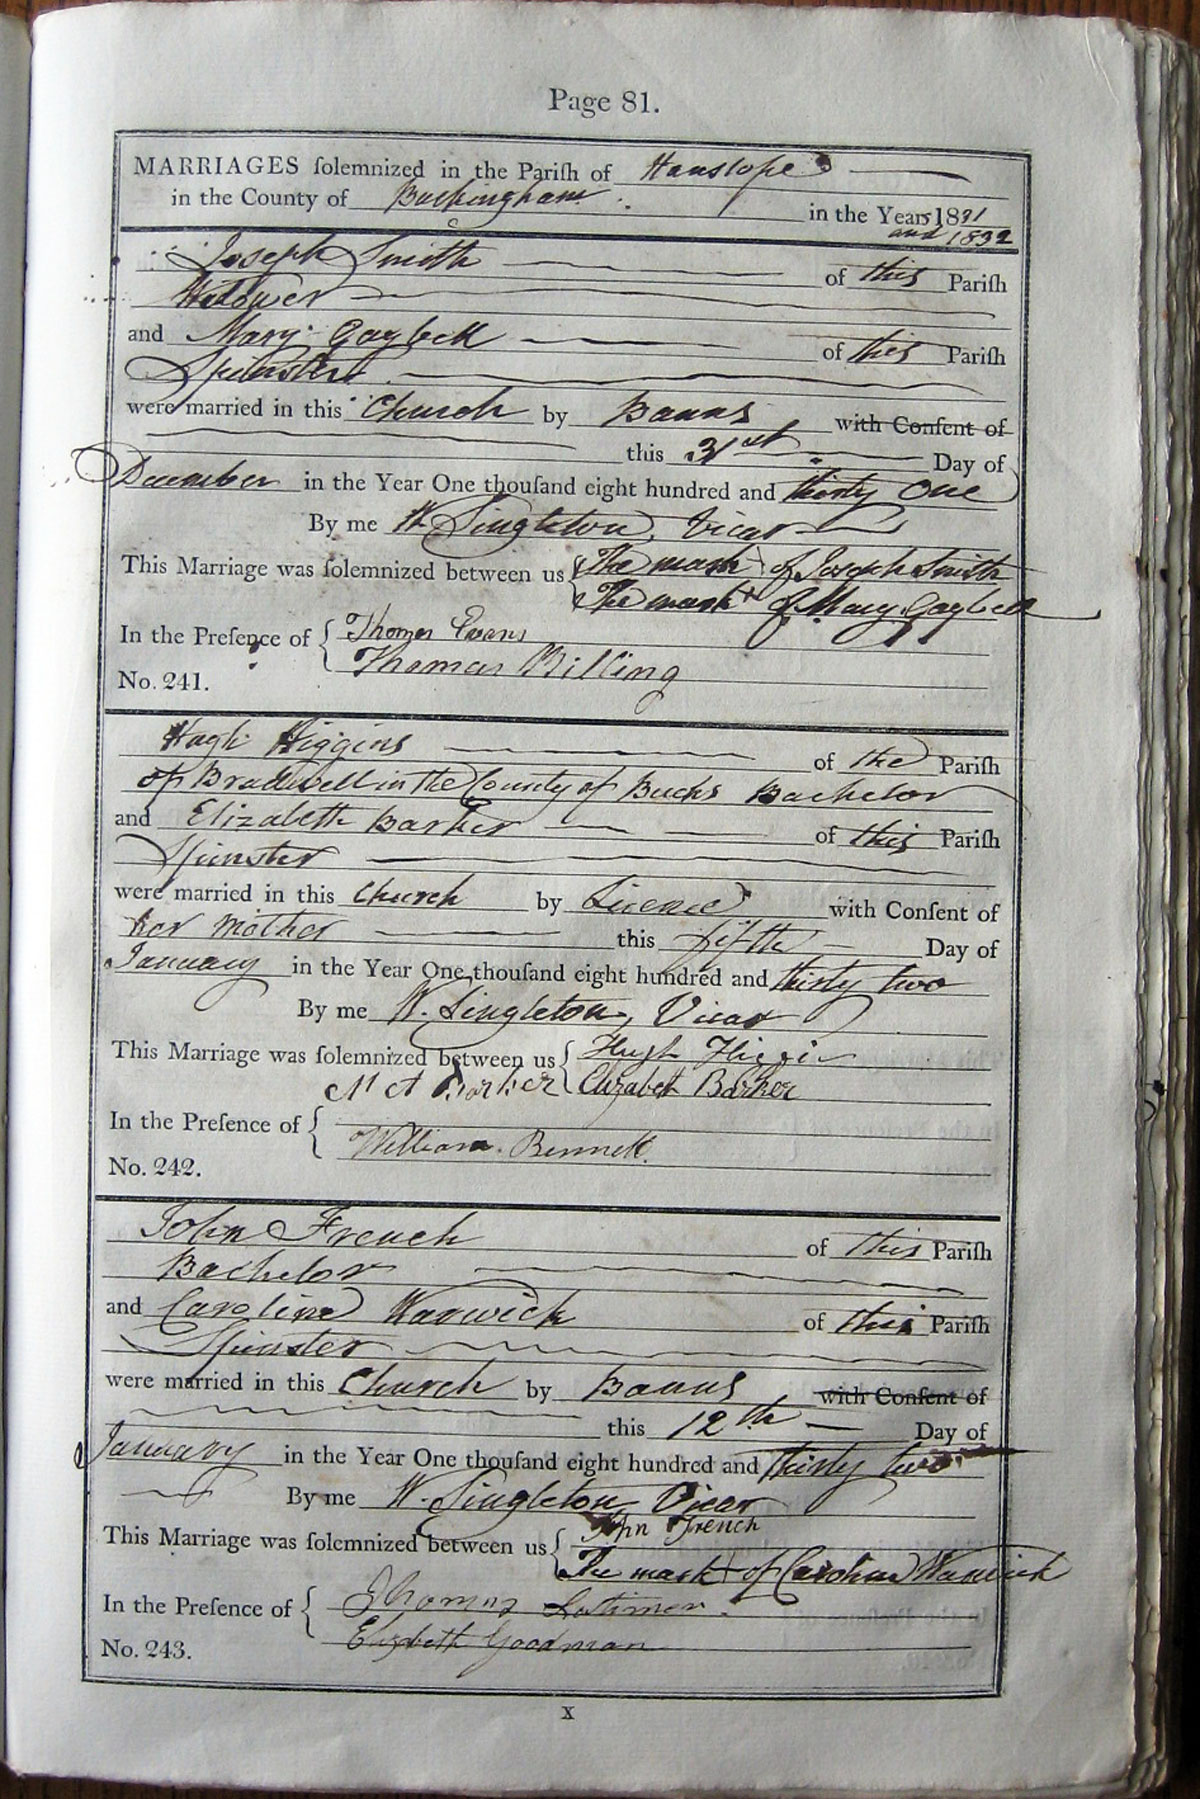 Page 81.
MARRIAGES ſolemnized in the Pariſh of Hanslope
in the County of Buckingham in the Years 1831
and 1832
Joseph Smith of this Pariſh
Widower
and Mary Gaybell of this Pariſh
Spinster
were married in this Church by Banns with Conſent of
this 31st Day of
December in the Year One thouſand eight hundred and thirty one
By me W. Singleton, Vicar
This Marriage was ſolemnized between us { The mark + of Joseph Smith
The mark + of Mary Gaybell
In the Preſence of { Thomas Evans
Thomas Billing
No. 241.
Hugh Higgins of the Pariſh
of Bradwell in the County of Bucks Bachelor
and Elizabeth Barker of this Pariſh
Spinster
were married in this Church by Licence with Conſent of
her Mother this fifth Day of
January in the Year One thouſand eight hundred and thirty two
By me W. Singleton, Vicar
This Marriage was ſolemnized between us { Hugh Higgins
M A Barker Elizabeth Barker
In the Preſence of {
William Bennell
No. 242.
John French of this Pariſh
Bachelor
and Caroline Warwick of this Pariſh
Spinster
were married in this Church by Banns with Conſent of
this 12th Day of
January in the Year One thouſand eight hundred and thirty two
By me W. Singleton, Vicar
This Marriage was ſolemnized between us { John French
The mark + of Caroline Warwick
In the Preſence of { Thomas Latimer
Elizabeth Goodman
No. 243.
x